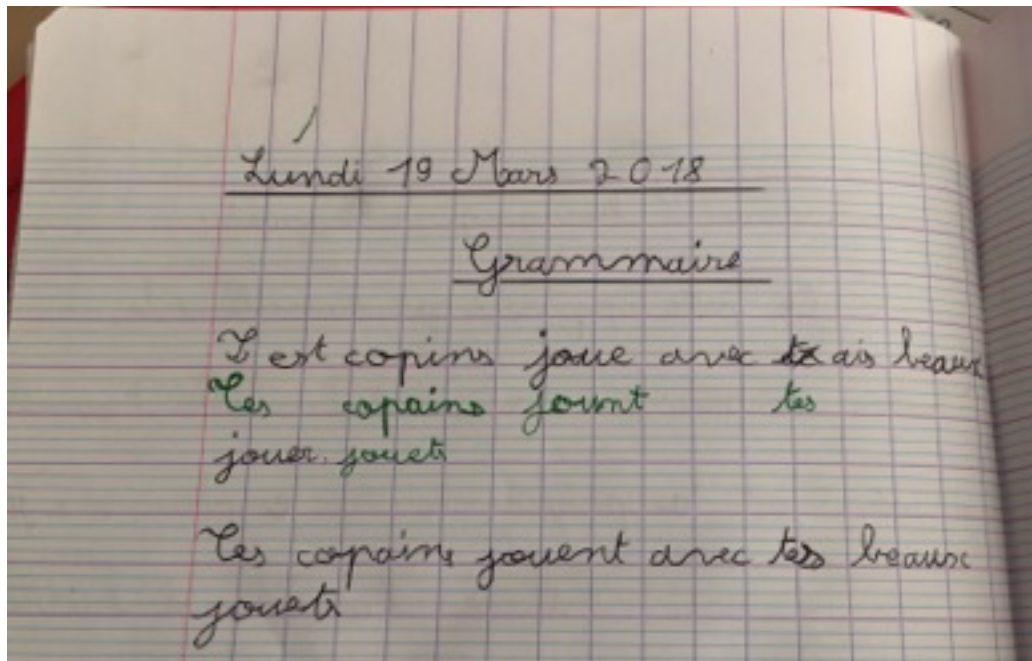 Lundi 19 Mars 2018
Grammaire
T est copins joue avec ais beaux
Tes copains jouent tes
jouer. jouets
Tes copains jouent avec tes beaux
jouets